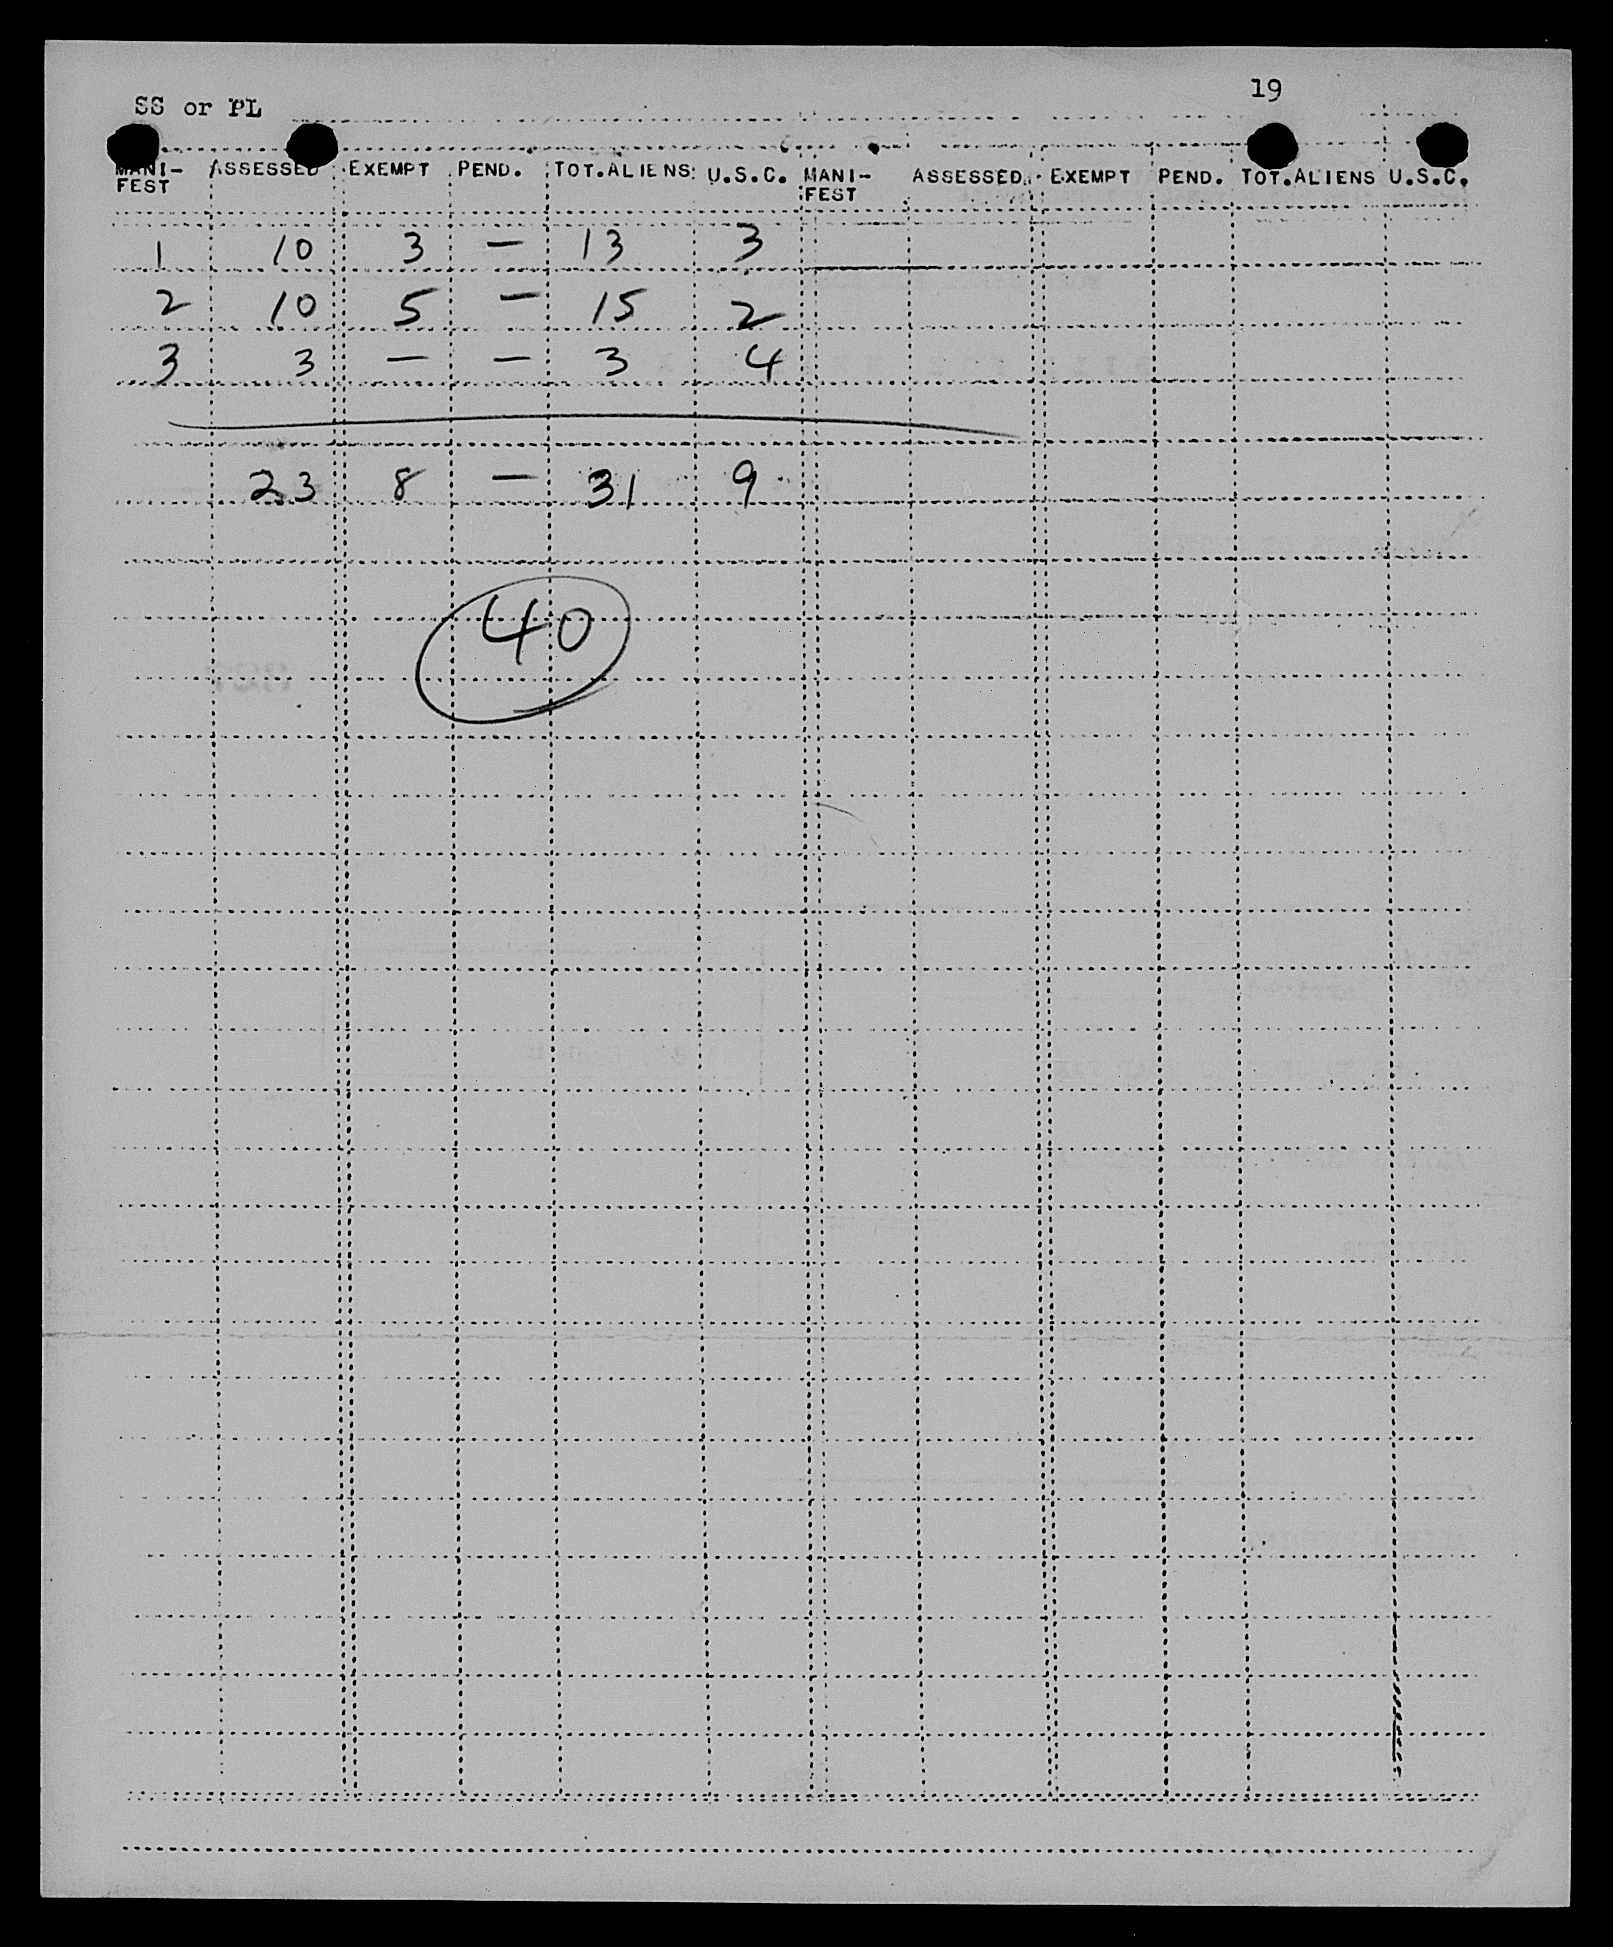 19
SS or PL
MANI-FEST ASSESSED EXEMPT PEND. TOT.ALIENS U.S.C. MANI-FEST ASSESSED EXEMPT PEND. TOT.ALIENS U.S.C.
1 10 3 — 13 3
2 10 5 — 15 2
3 3 — — 3 4
23 8 — 31 9
40